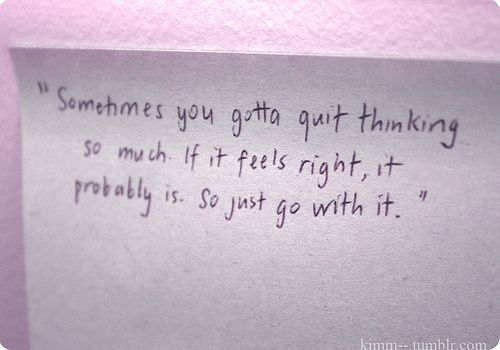 "Sometimes you gotta quit thinking
so much. If it feels right, it
probably is. So just go with it."
kimm--.tumblr.com